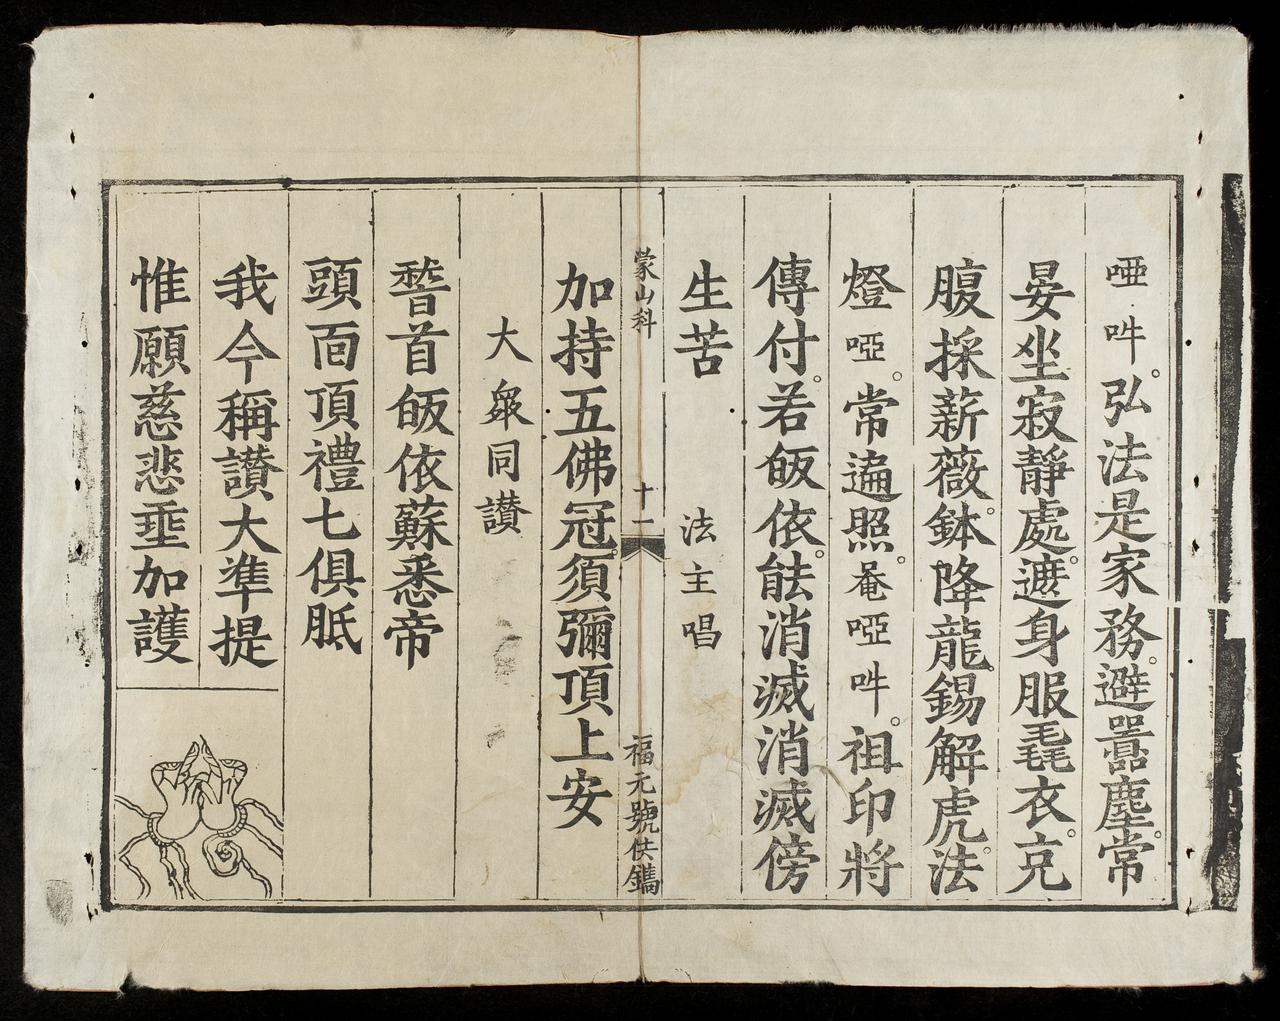 啞吽。弘法是家務。避囂塵。常
晏坐寂靜處。遮身服毳衣。充
腹採薪薇。鉢降龍。錫解虎。法
燈啞。常遍照。菴啞吽。祖印將
傳付。若皈依。能消滅消滅傍
生苦 法主唱
蒙山科 十二 福元號供鐫
加持五佛冠。須彌頂上安
大衆同讃
稽首皈依蘇悉帝
頭面頂禮七俱胝
我今稱讃大準提
惟願慈悲垂加護